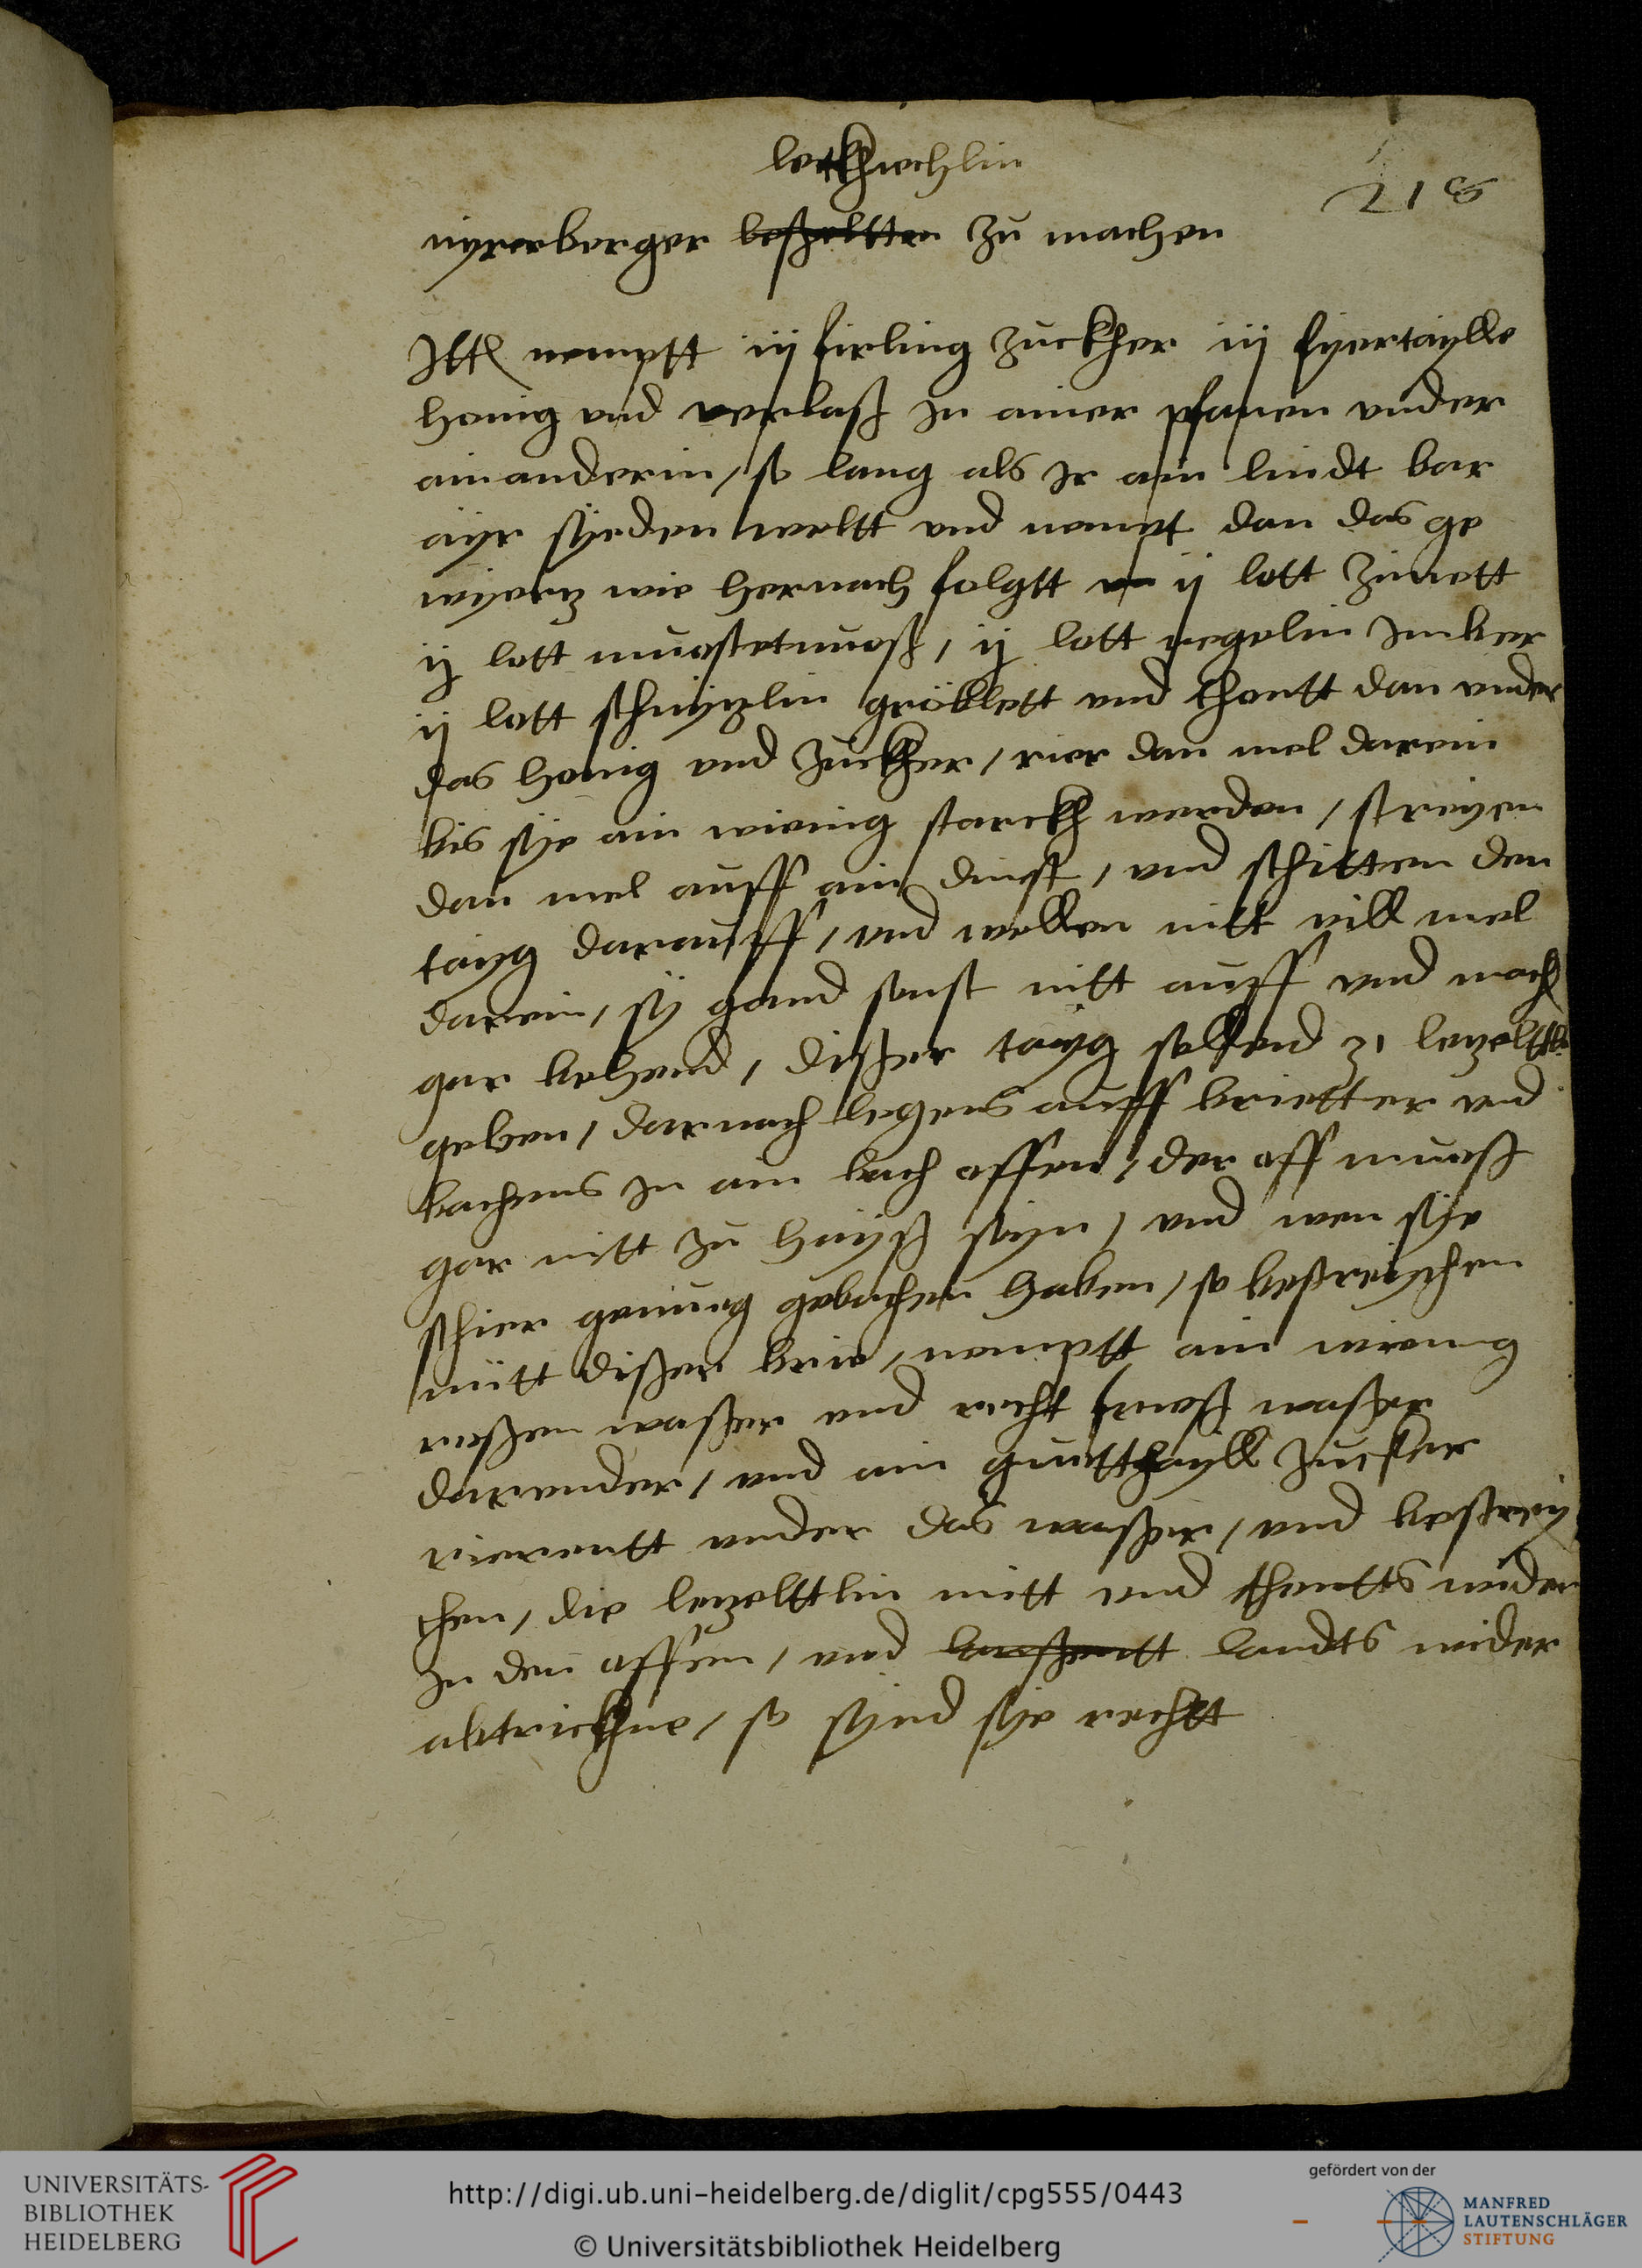 leckhuechlin
218
nyrerberger leßzeltten zu machen
Itt nemptt iij firling zuckher iij fyertaylle
honig vnd verlaß in ainer pfanen vnder
ainanderin / so lang als ir ain lindt bar
ayr syeden weltt vnd nempt dan das ge
wyertz wie hernach folgtt ij lott zimett
ij lott muostetnuoß / ij lott negelin Imber
ij lott schnyzlin gröblett vnd thontt dan vnder
das honig vnd zuckher / rier dan mel darein
bis sye ain wienig starckh werden / streyen
dan mel auff ain dinst / vnd schitten den
tayg darauff / vnd wellen nitt vill mel
darein / sy gand sonst nitt auff vnd mach
gar behend / dißer tayg sollend 31 lezelttli
geben / darnach legens auff brietter vnd
bachens in ain bach offen / der off muoß
gar nitt zu hayß sayn / vnd wen sye
schier genuog gebachen haben / so bestreychen
mitt dißer brie / nemptt ain wienig
roßen waßer vnd recht waßer
darunder / vnd ain guettthayll zucker
rierentt vnder das waßer / vnd bestrey
chen / die lezelttlin mitt vnd thontts wider
in den offen / vnd landts wider
abtrickhne / so synd sye rechtt
UNIVERSITÄTS-
BIBLIOTHEK
HEIDELBERG
http://digi.ub.uni-heidelberg.de/diglit/cpg555/0443
© Universitätsbibliothek Heidelberg
gefördert von der
MANFRED
LAUTENSCHLÄGER
STIFTUNG